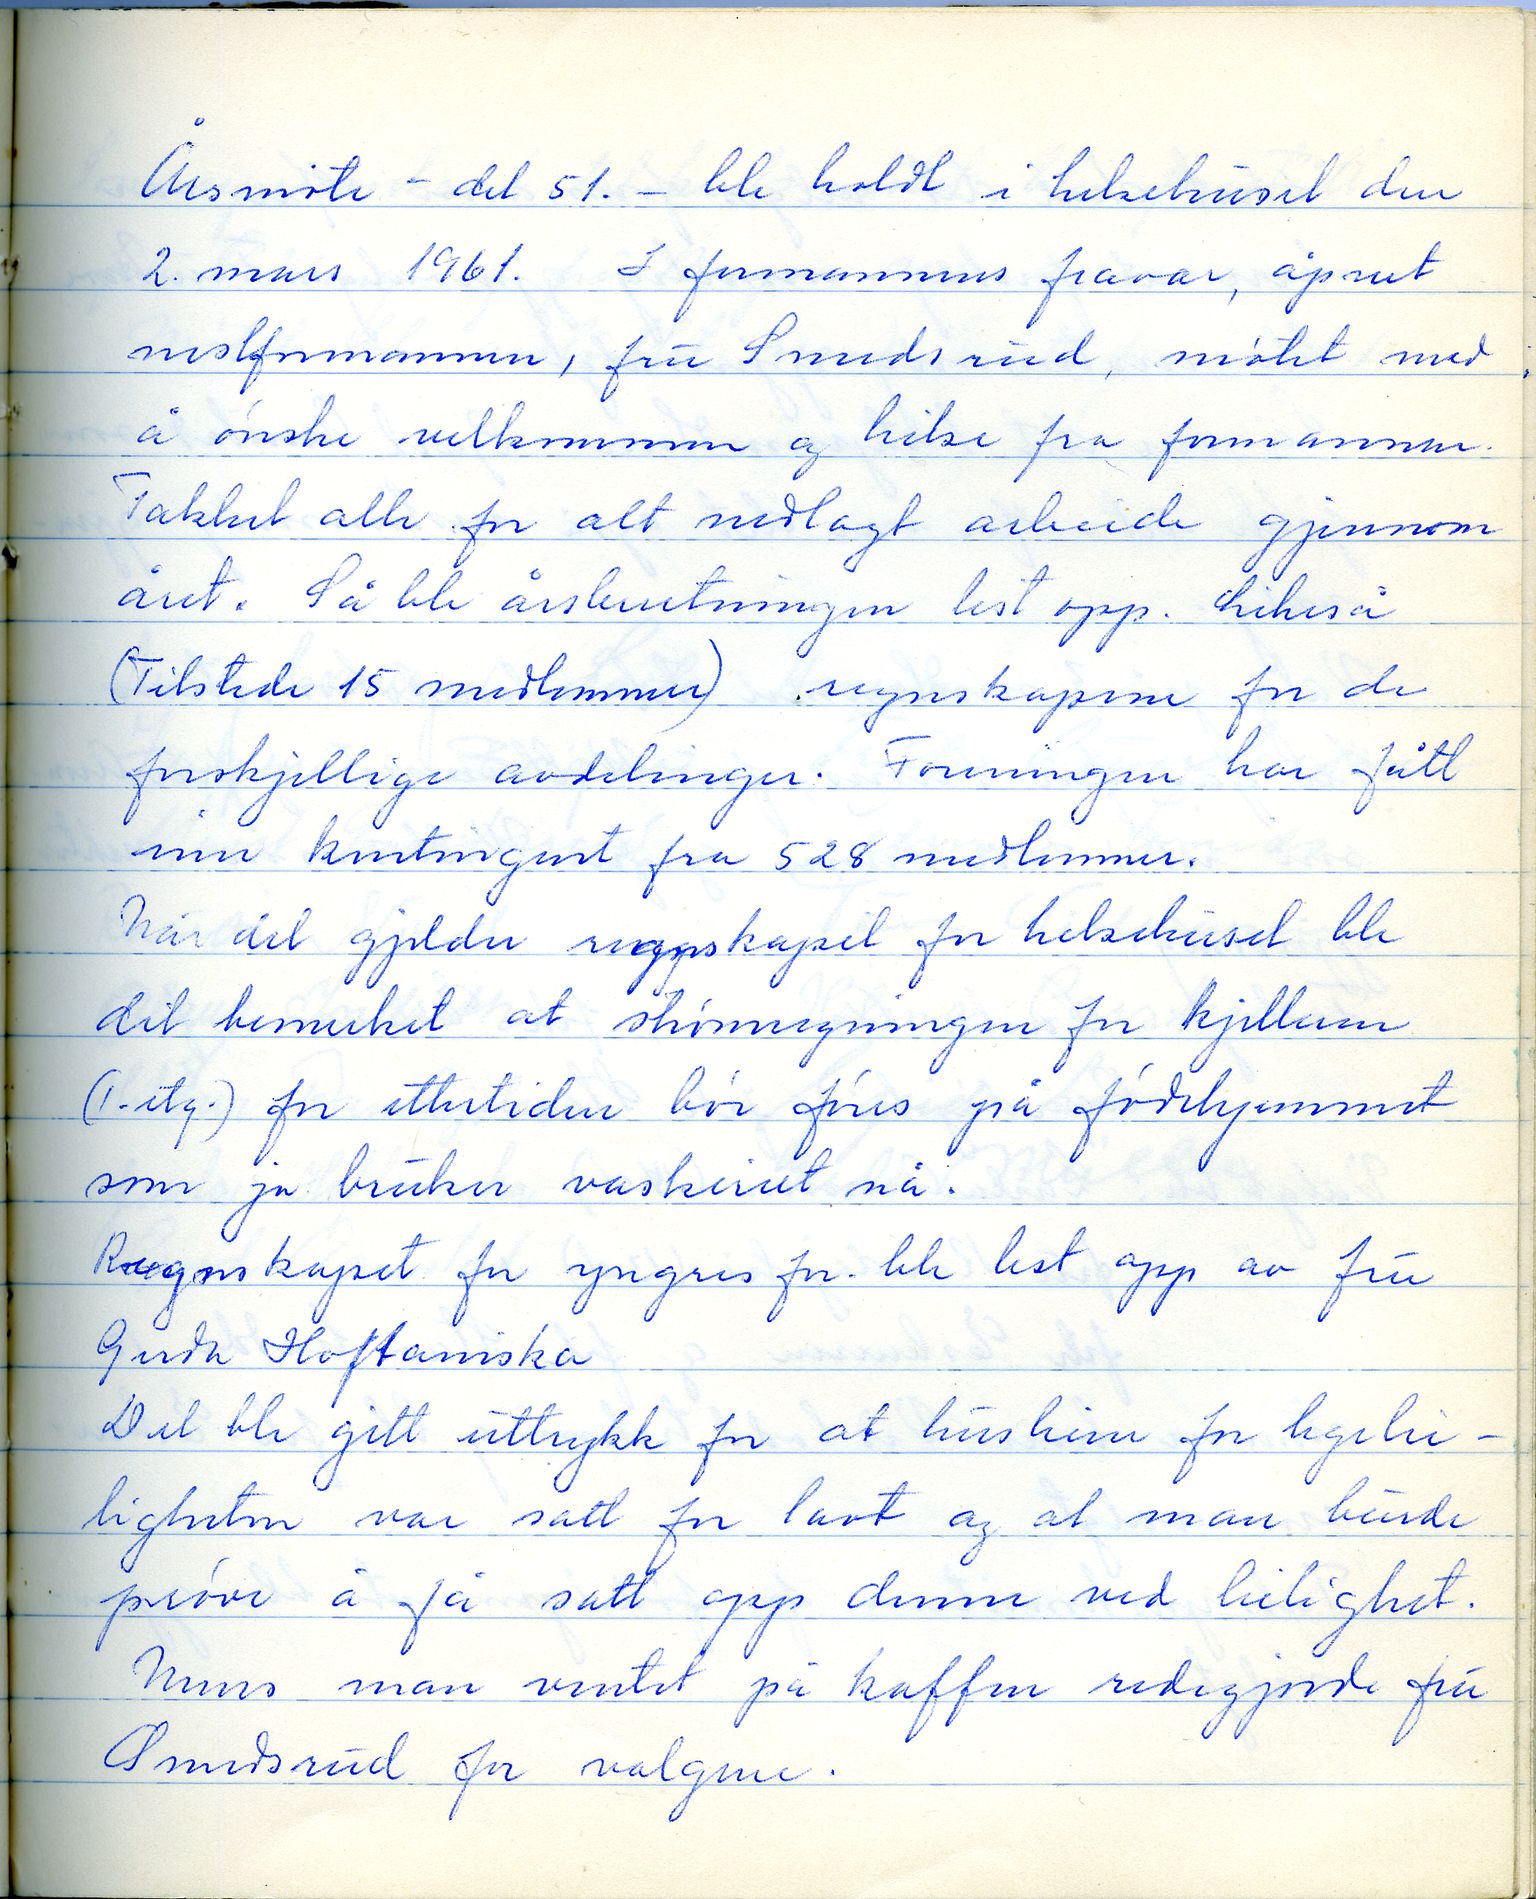 Årsmøte - det 51. - ble holdt i helsehuset den
2. mars 1961. I formannens fravær, åpnet
nestformannen, fru Smedsrud, møtet med
å ønske velkommen og hilse fra formannen.
Takket alle for alt nedlagt arbeide gjennom
året. Så ble årsberetningen lest opp. Likeså
(Tilstede 15 medlemmer) regnskapene for de
forskjellige avdelinger. Foreningen har fått
inn kontingent fra 528 medlemmer.
Når det gjelder regnskapet for helsehuset ble
det bemerket at strømregningen for kjelleren
(1. etg.) for ettertiden bør føres på fødehjemmet
som jo bruker vaskeriet nå.
Regnskapet for yngres for. ble lest opp av fru
Gerda Hoftaniska
Det ble gitt uttrykk for at husleien for legelei-
ligheten var satt for lavt og at man burde
prøve å få satt opp denne ved leilighet.
Mens man ventet på kaffen redegjorde fru
Smedsrud for valgene.